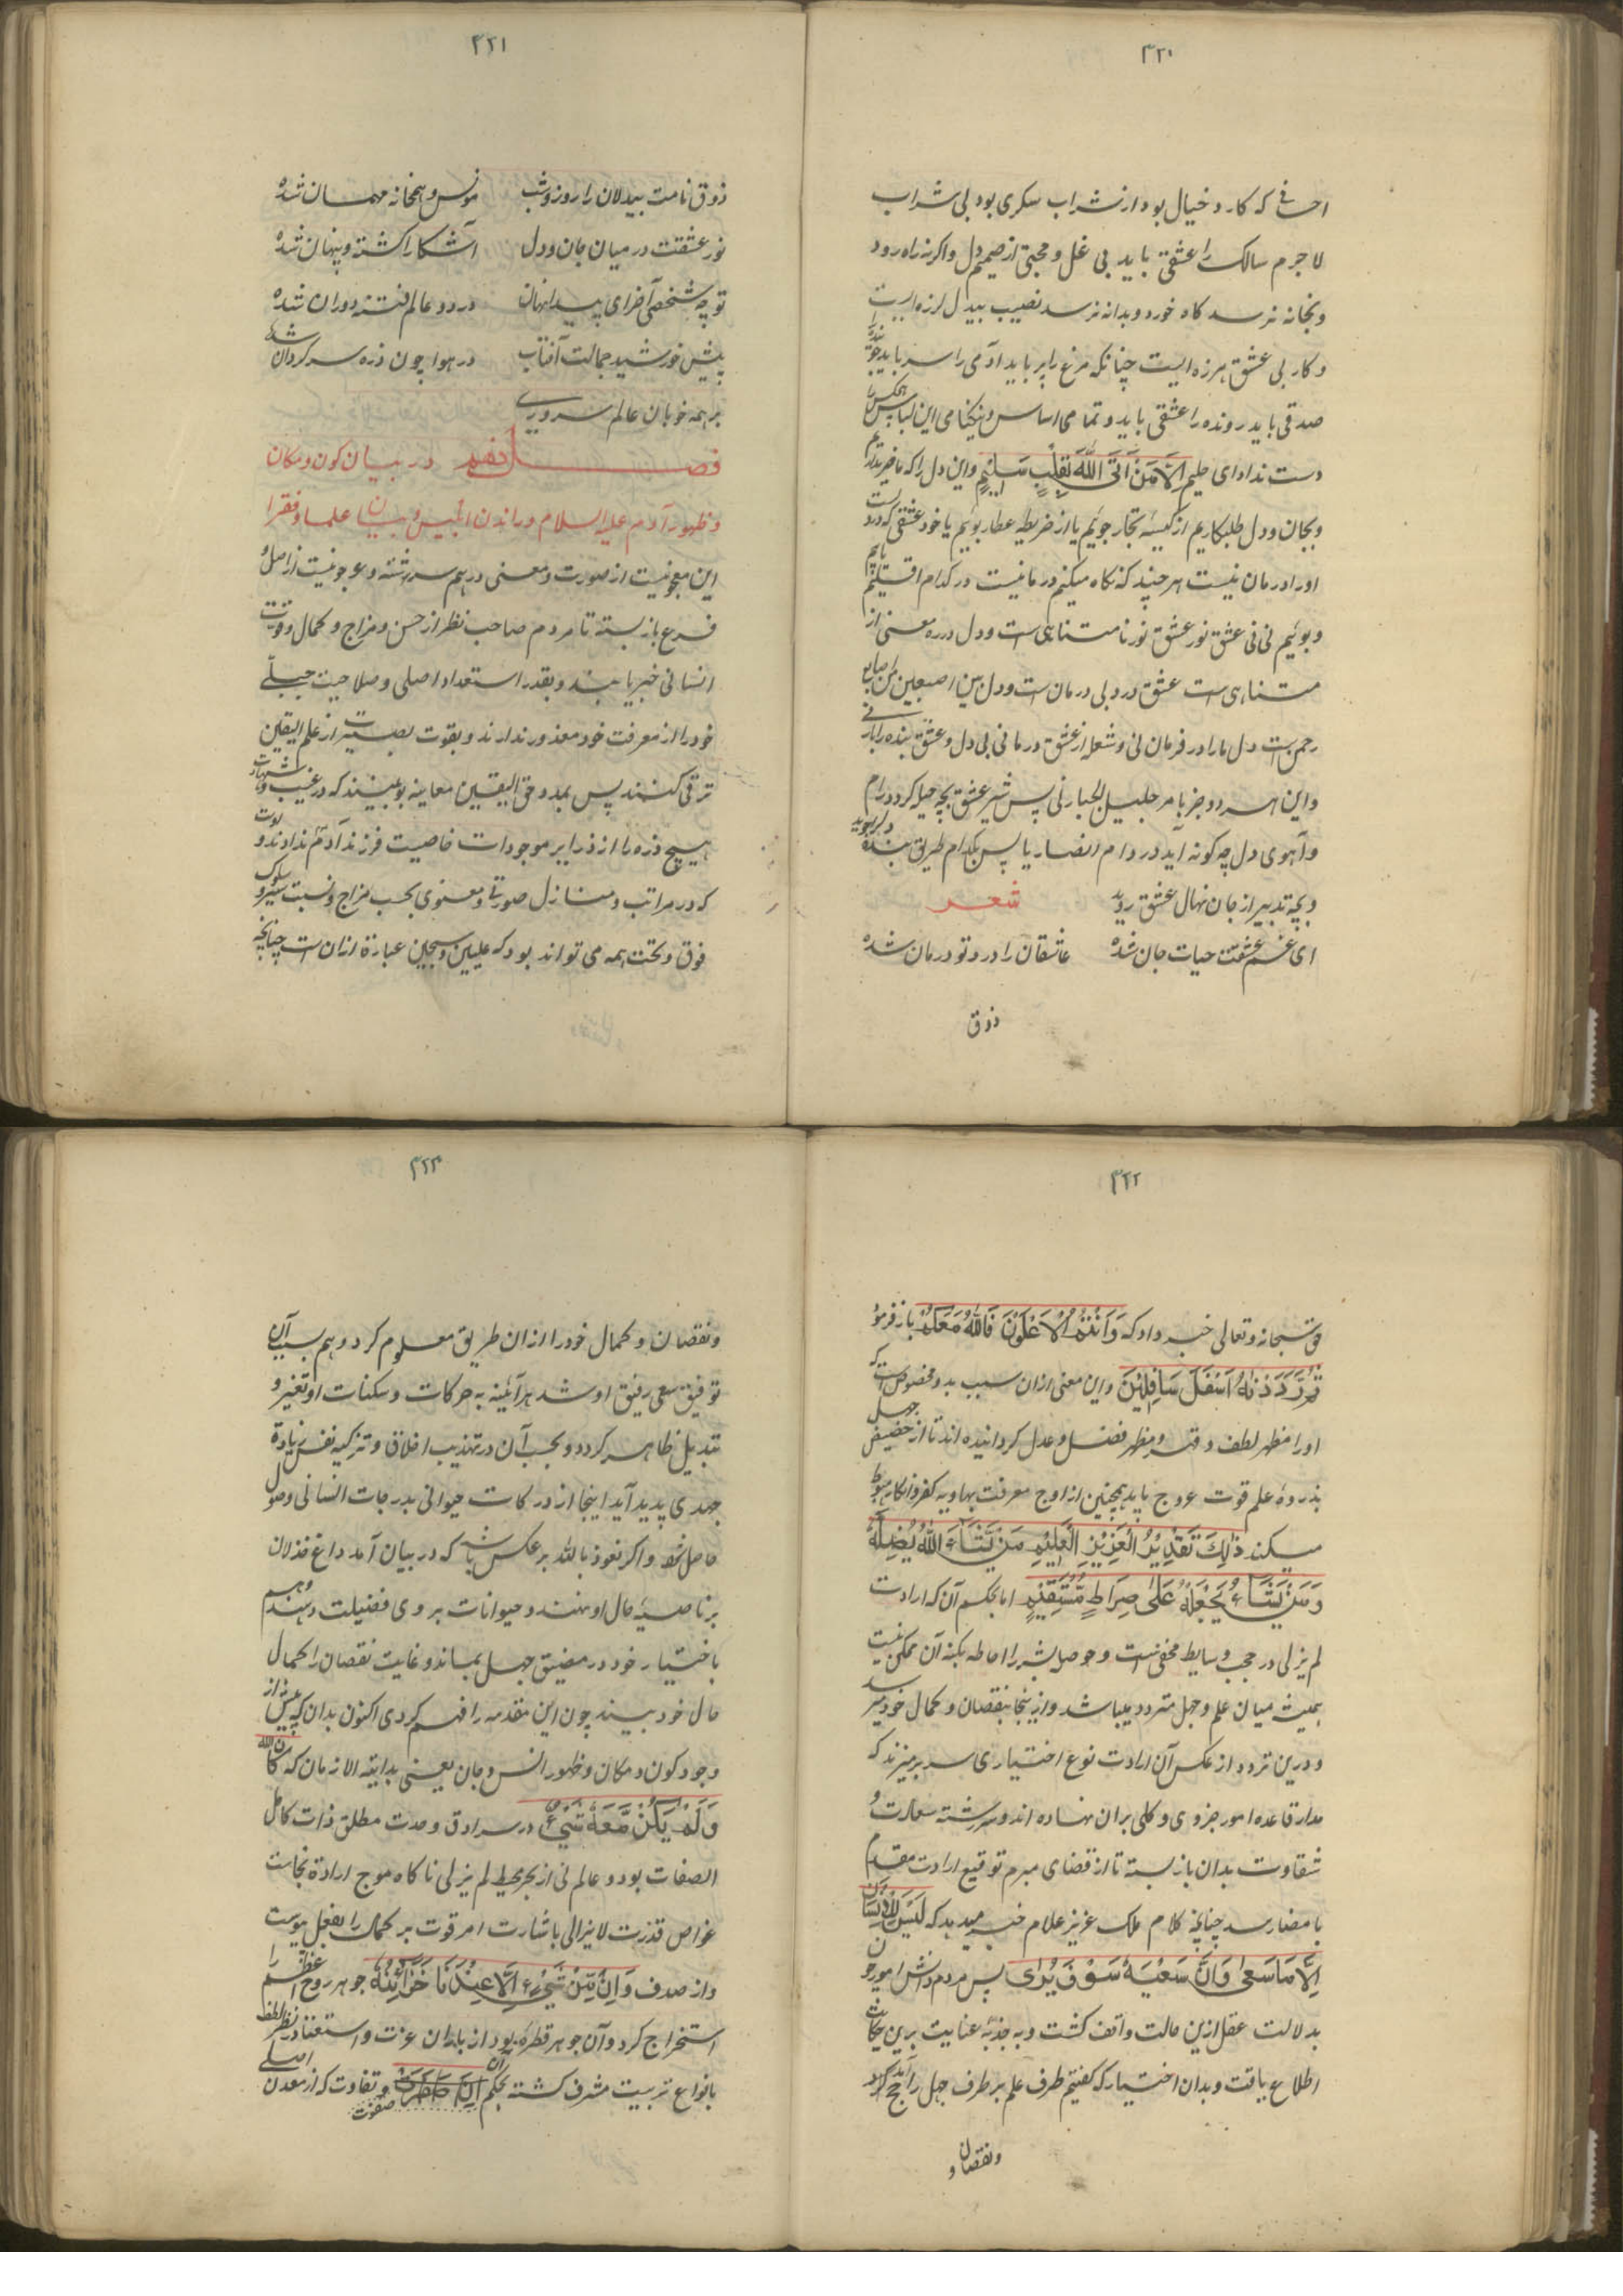 ۳۲۰
که کار و خیال بود از شراب سکری بود بی شراب
لاجرم سالک را عشقی باید بی غل و محبتی از صمیم دل واکرنه راه رود
وبخانه نرسد کاه خورد وبدانه نرسد نصیب بیدل لرزه است
وکار بی عشق هرزه ایست چنانکه مرغ را پر باید آدمی را سر باید
صدقی باید رونده را عشقی باید و تمامی اساس ونیکنامی این لباس
دست نداد ای حلیم اِلَّا مَنْ اَتَی اللّٰهَ بِقَلْبٍ سَلِیْمٍ واین دل را که ما خریداریم
وبجان ودل طلبکاریم از کیسه تجار جوئیم یا از خریطه عطار بوئیم یا خود عشقی که درد
او را درمان نیست هر چند که نکاه میکنم درمان نیست در کدام اقلیم یابم
وبوئیم نی نی عشق نور عشق نور نامتناهی است ودل دره معنی از
متناهی است عشق درد بی درمان است ودل بین اصبعین من اصابع
رحمن است دل ما را در فرمان نی وشعله از عشق درمانی بی دل وعشق بنده را
واین هر دو جز بامر جلیل الجبار نی پس شیر عشق بچه حیله کردد رام
وآهوی دل چه کونه آید در دام انصار یا پس بکدام طریق بنده دل را جوید
وبچه تدبیر از جان نهال عشق روید
شعر
ای غم عشقت حیات جان شده عاشقان را درد تو درمان شده
ذوق
۳۲۱
ذوق نامت بیدلان را روز وشب مونس وهمخانه مهمان شده
نور عشقت در میان جان ودل آشکارا کشته وپنهان شده
تو چه شخصی آخر ای پیدا نهان در دو عالم فتنه دوران شده
پیش خورشید جمالت آفتاب در هوا چون ذره سرکردان شده
بر همه خوبان عالم سروری
فصل در بیان کون ومکان
وظهور آدم علیه السلام وراندن ابلیس وبیان علما وفقرا
این معجونیست از صورت ومعنی در هم سرشته از اصل و
فرع باز بسته تا مردم صاحب نظر از حسن ومزاج وکمال وقوت
انسانی خبر یابند وبقدر استعداد اصلی وصلاحیت جبلّی
خود را از معرفت خود معذور ندارند وبقوت بصیرت از علم الیقین
ترقی کنند پس بمدد حق الیقین معاینه بینند که در غیب وشهادت
هیچ ذره را از ذرایر موجودات خاصیت فرزند آدم نداده اند و
که در مراتب ومنازل صورتی ومعنوی بحسب مزاج ونسبت سیر وسلوک
فوق وتحت همه می تواند بود که علیین وسجین عبارة ازان است چنانچه
۳۲۲
حق سبحانه وتعالی خبر داد که وَاَنْتُمُ الْاَعْلَوْنَ فَاللّٰهُ مَعَکُمْ باز فرمود
ثُمَّ رَدَدْنٰهُ اَسْفَلَ سَافِلِیْنَ واین معنی ازان سبب بدو مخصوص است که
او را مظهر لطف وقهر ومظهر فضل وعدل کردانیده اند تا از حضیض جهل
بذروهٔ علم قوت عروج یابد همچنین از اوج معرفت بهاویه کفر وانکار هبوط
میکند ذٰلِکَ تَقْدِیْرُ الْعَزِیْزِ الْعَلِیْمِ مَنْ یَّشَآءِ اللّٰهُ یُضْلِلْهُ
وَمَنْ یَّشَاءُ یَجْعَلْهُ عَلٰی صِرَاطٍ مُّسْتَقِیْمٍ اما بحکم آن که ارادت
لم یزلی در حجب وسایط مخفی است وحوصله بشر را احاطه بکنه آن ممکن نیست
همیشه میان علم وجهل متردد میباشد وازینجا بنقصان وکمال خود میرسد
ودرین تردد از عکس آن ارادت نوع اختیاری سر بر میزند که
مدار قاعده امور جزوی وکلی بران نهاده اند وسررشته سعادت و
شقاوت بدان باز بسته تا از قضای مبرم توقیع ارادت مقدم
بامضا رسد چنانچه کلام ملک عزیز علام خبر میدهد که لَیْسَ لِلْاِنْسَانِ
اِلَّا مَا سَعٰی وَاَنَّ سَعْیَهٗ سَوْفَ یُرٰی پس مردم دانش آموز چون
بدلالت عقل ازین حالت واقف کشت وبه جذبهٔ عنایت برین حکایت
اطلاع یافت وبدان اختیار که کفتیم طرف علم بر طرف جهل راجح کرد
ونقصان و
۳۲۳
ونقصان وکمال خود را ازان طریق معلوم کرد وهم بسبب آن
توفیق سعی رفیق او شد هرآئینه به حرکات وسکنات او تغیر و
تبدیل ظاهر کردد وبحسب آن در تهذیب اخلاق وتزکیه نفس زیادة
جهدی پدید آید اینجا از درکات حیوانی بدرجات انسانی وصول
حاصل شود واکر نعوذ بالله بر عکس باشد که در بیان آمد داغ خذلان
بر ناصیهٔ حال او نهند وحیوانات بر وی فضیلت دهند وهم
باختیار خود در مضیق جهل بماند وغایت نقصان را کمال
حال خود بیند چون این مقدمه را فهم کردی اکنون بدان که پیش از
وجود کون ومکان وظهور انس وجان یعنی بدایة الازمان که کان الله
وَلَمْ یَکُنْ مَّعَهٗ شَیْءٌ در سرادق وحدت مطلق ذات کامل
الصفات بود وعالم نی از بحر محیط لم یزلی ناکاه موج ارادة بخاست
غواص قدرت لایزالی باشارت امر قوت بر کمال را بفعل پیوست
واز صدف وَاِنْ مِّنْ شَیْءٍ اِلَّا عِنْدَنَا خَزَائِنُهٗ جوهر روح اعظم را
استخراج کرد وآن جوهر قطره بود از باران عزت واستغنا در نظر لطف
بانواع تربیت مشرف کشته بحکم آن صفوت وتفاوت که از معدن اصلی